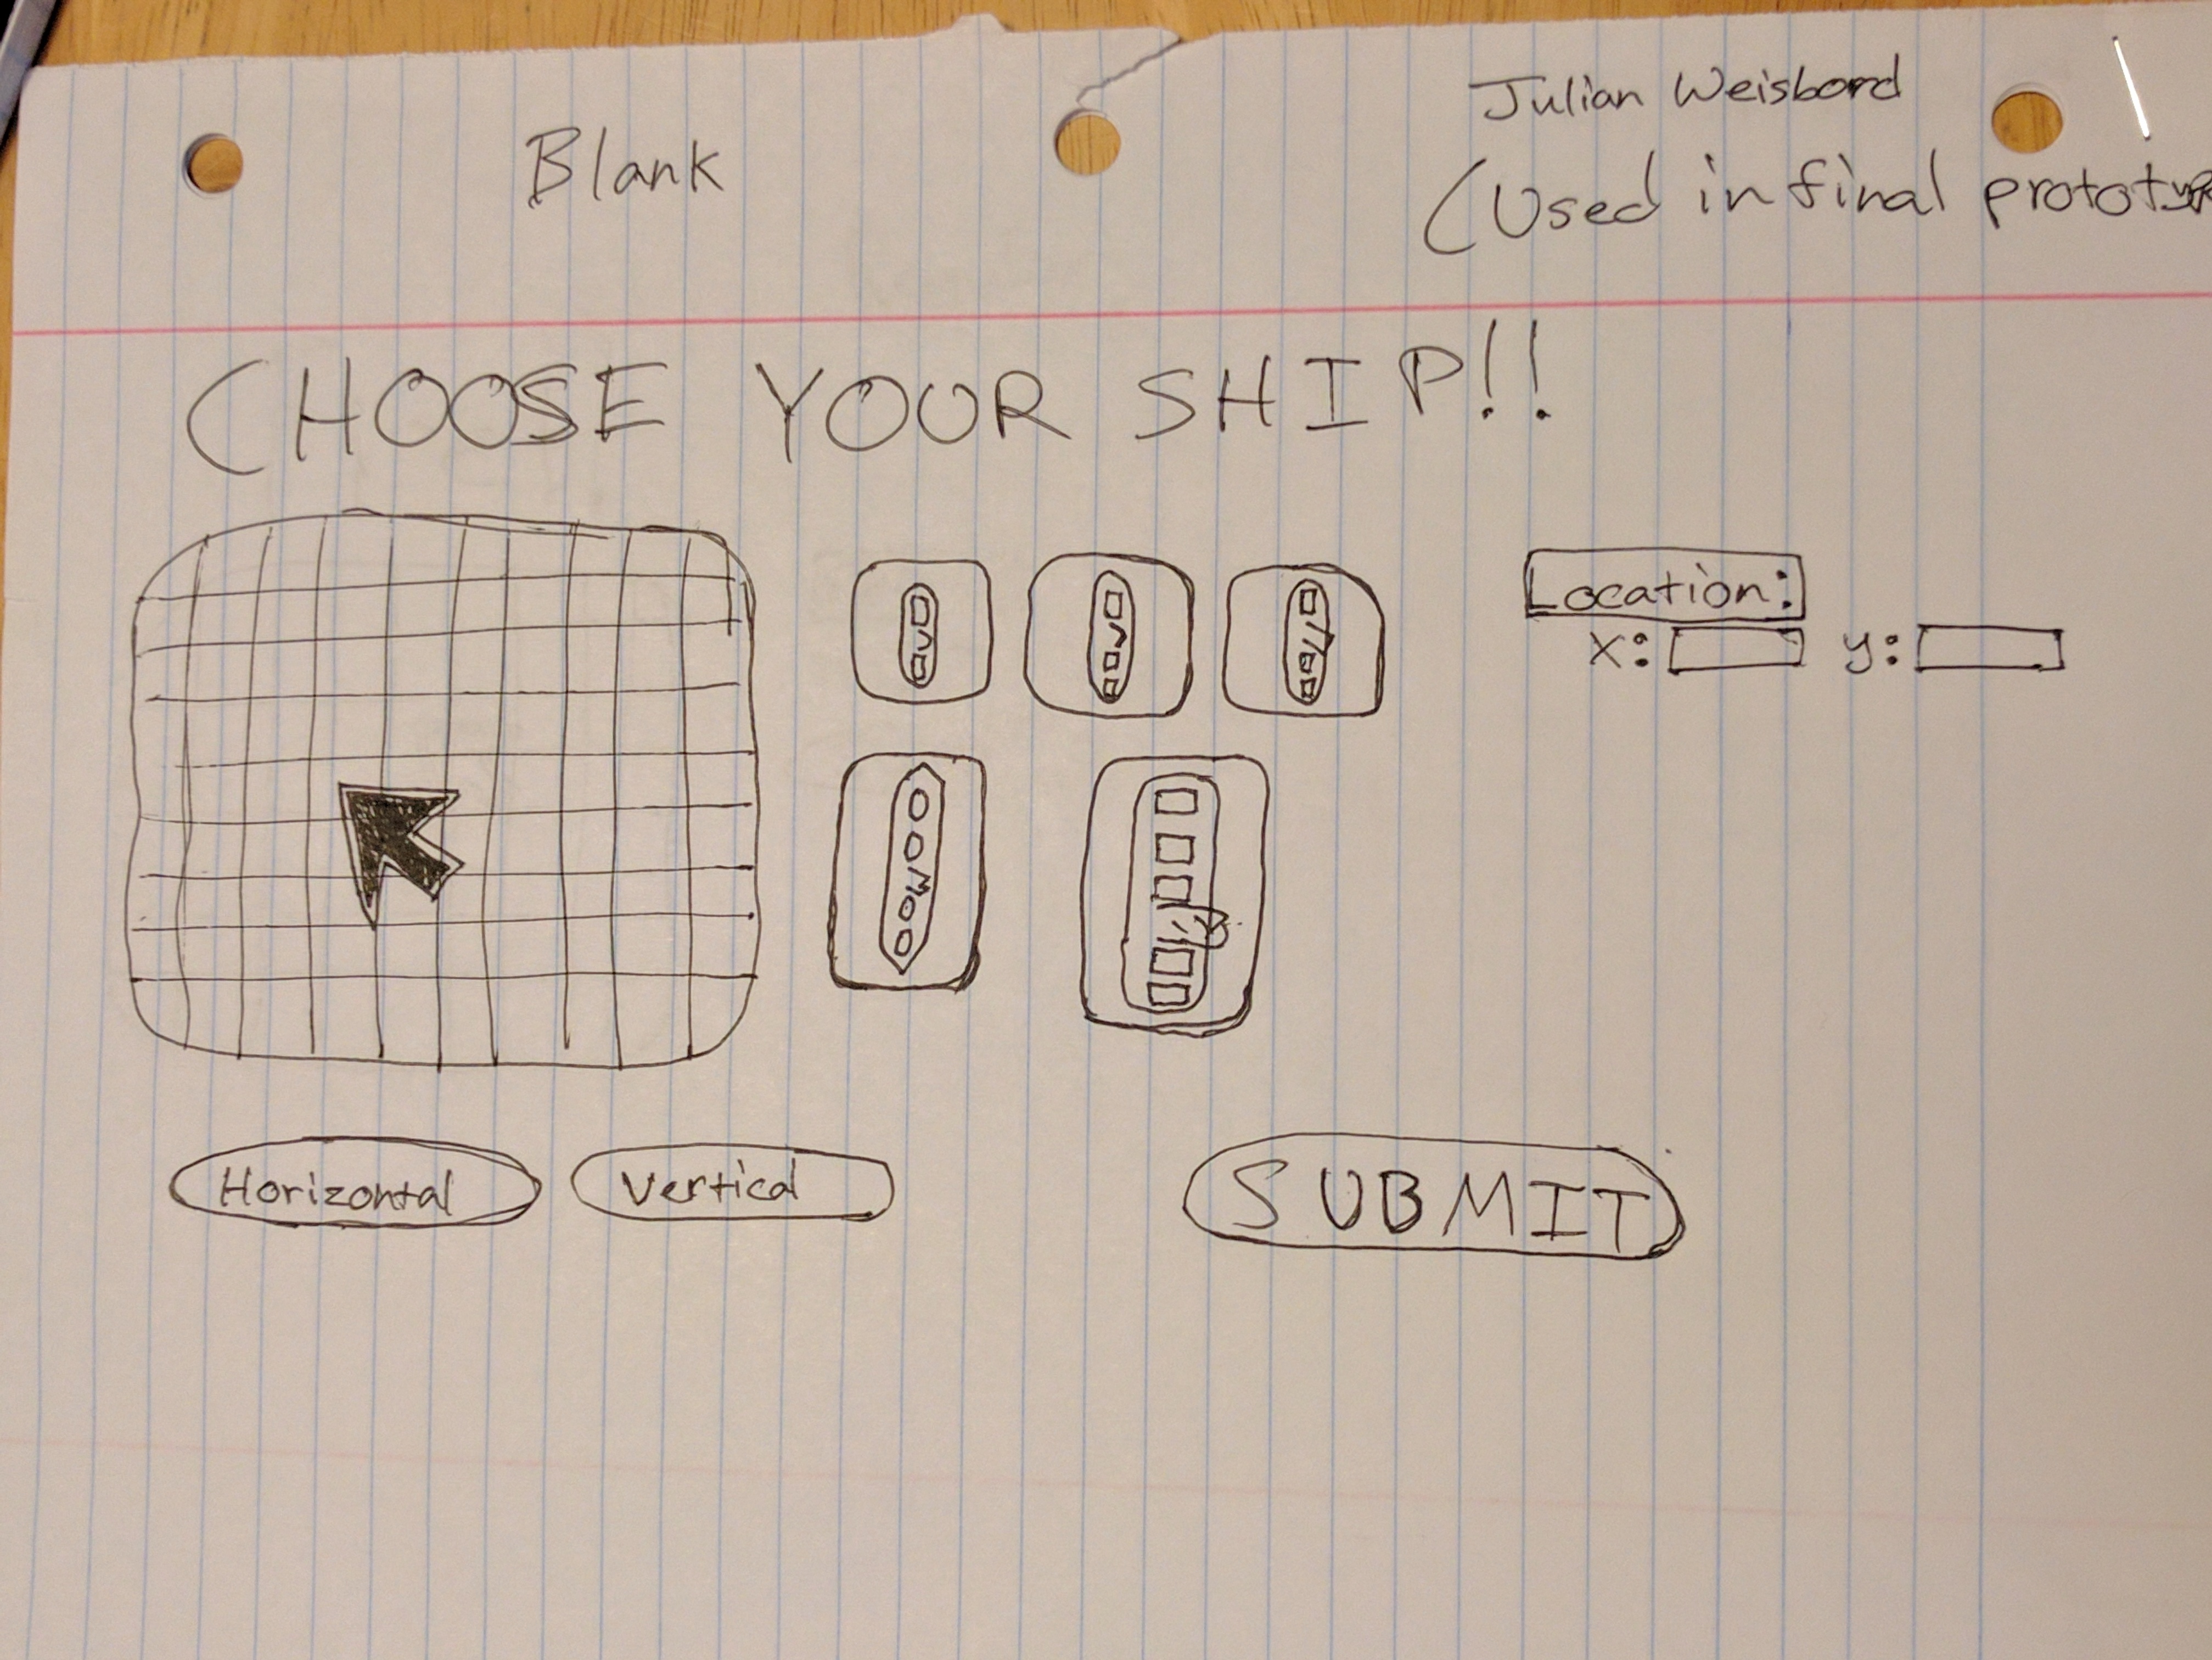 Julian Weisbord
Blank
(Used in final prototype
CHOOSE YOUR SHIP!!
Location:
x: y:
Horizontal Vertical SUBMIT